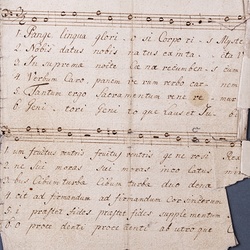 1 Pange lingua glori o si Corpo ri s Myste
2 Nobis datus nobis natus ex inta
3 In suprema nocte Cæna recumbens cum
4 Verbum Caro panem ve rum verbo carnem
5 Tantum ergo Sacramentum vene re mur
6 Geni tori Geni to que laus et Ju bi
1 um fructus ventris fructus ventris ge ne rosi Rex
2 ne sui moras sui moras inco latus mi
3 bus Cibum turbæ Cibum turbæ duo dena
4 cit ad firmandum ad firmandum Cor sincerum
5 i præstet fides præstet fides supplementum
6 o proce denti proce denti ab utro que